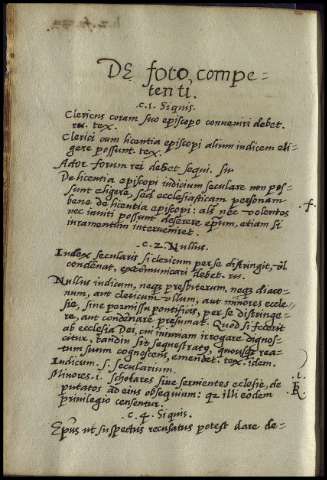 DE foro, compe-
tenti.
.c.1. Siquis.
Clericus coram suo episcopo conueniri debet.
rei. tex.
Clerici cum licentia episcopi alium iudicem eli-
gere possunt. tex.
Actor forum rei debet sequi.
De licentia episcopi iudicium seculare non pos-
sunt eligere, sed ecclesiasticam personam
bene de licentia episcopi: als nec volentes
nec iuniti possunt deserere epum, etiam si
iuramentum interueniret.
.f.
.c.2. Nullus.
Iudex secularis si clericum per se distringit, vl
condenat, excomunicari debet.
Nullus iudicum, neqz presbiterum, neqz diaco-
num, aut clericum vllum, aut minores eccle-
sie, sine permissu pontificis, per se distringe-
re, aut condenare presumat. Quod si fecerit
ab ecclesia Dei, cui iniuriam irrogare dignos-
citur, tandiu sit sequestratus, quousqz rea-
tum suum cognoscens, emendet. tex. idem.
Iudicum .s. secularium.
Minores .i. scholares siue seruientes eclesie, de-
putatos ad eius obsequium: qz illi eodem
priuilegio censentur.
.t.
.c.4. Siquis.
Epus ut suspectus recusatus potest dare de-